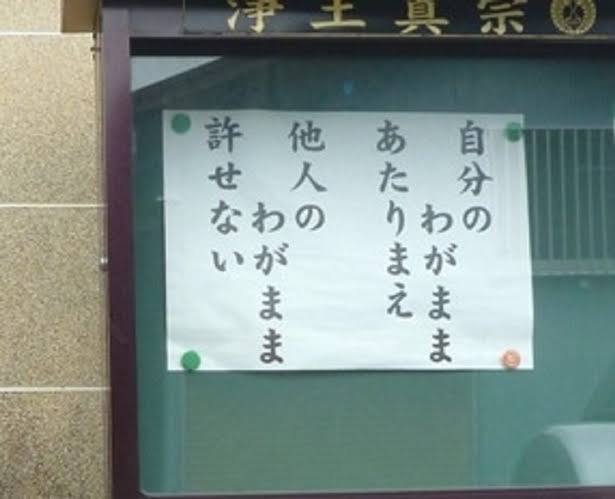 浄土真宗
自分の
わがまま
あたりまえ
他人の
わがまま
許せない